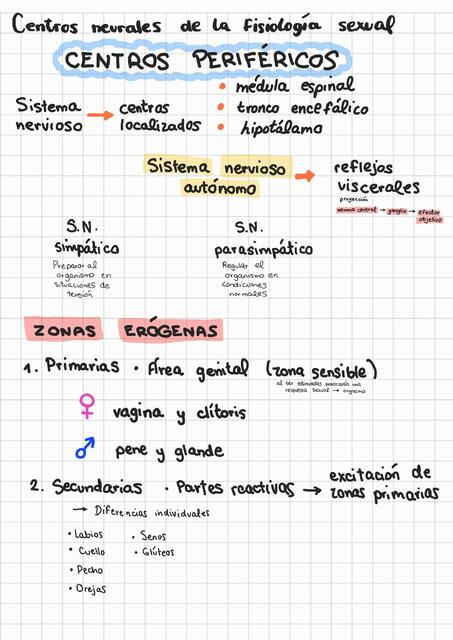 Centros neurales de la fisiología sexual
CENTROS PERIFÉRICOS
Sistema nervioso → centros localizados
• médula espinal
• tronco encefálico
• hipotálamo
Sistema nervioso autónomo → reflejos viscerales
proyección
neurona central → ganglio → efector objetivo
S.N. simpático
Preparar al
organismo en
situaciones de
tensión
S.N. parasimpático
Regular el
organismo en
condiciones
normales
ZONAS ERÓGENAS
1. Primarias • Área genital (zona sensible)
al ser estimuladas provocarán una
respuesta sexual → orgasmo
♀ vagina y clítoris
♂ pene y glande
2. Secundarias • Partes reactivas → excitación de zonas primarias
→ Diferencias individuales
• Labios
• Cuello
• Pecho
• Orejas
• Senos
• Glúteos